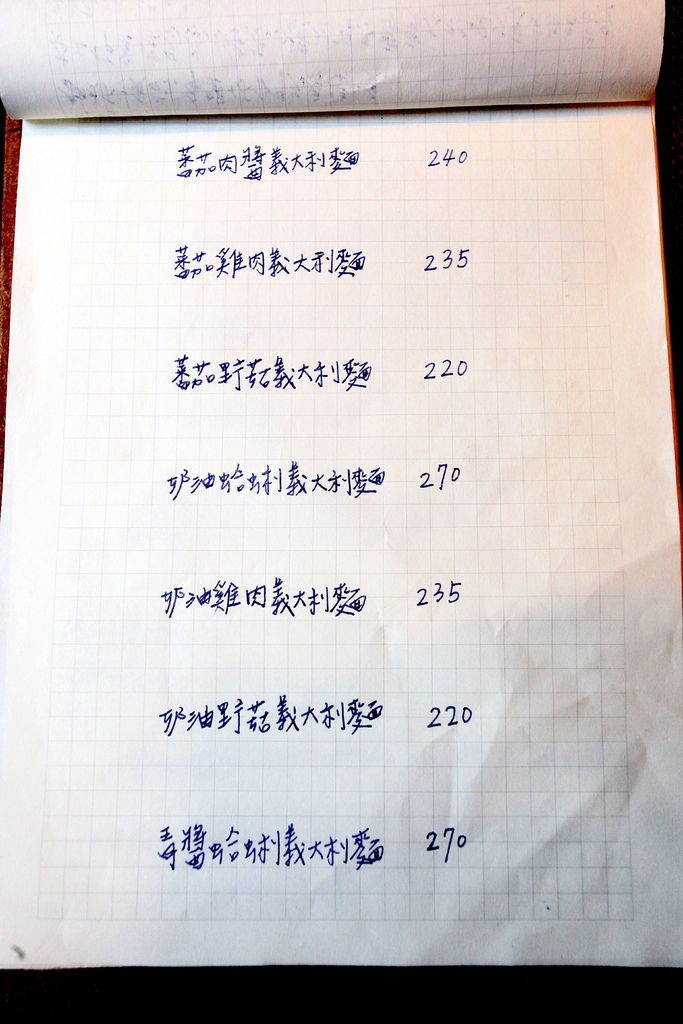 蕃茄肉醬義大利麵 240
蕃茄雞肉義大利麵 235
蕃茄野菇義大利麵 220
奶油蛤蜊義大利麵 270
奶油雞肉義大利麵 235
奶油野菇義大利麵 220
青醬蛤蜊義大利麵 270